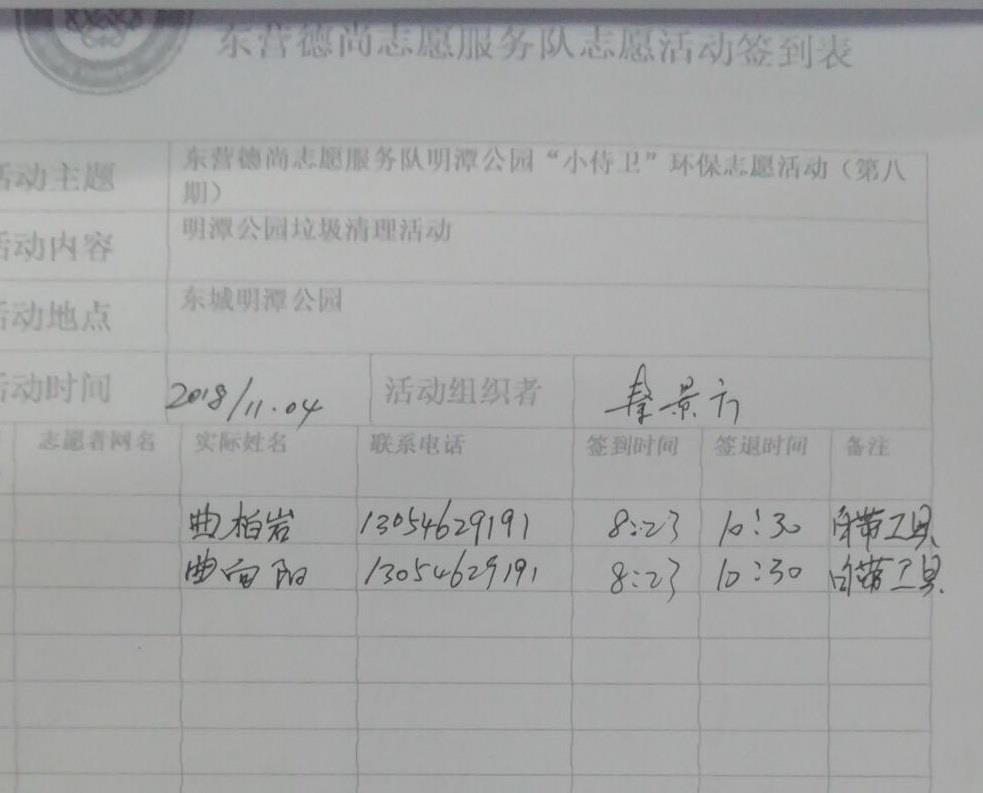 东营德尚志愿服务队志愿活动签到表
活动主题 东营德尚志愿服务队明潭公园“小侍卫”环保志愿活动（第八
期）
活动内容 明潭公园垃圾清理活动
活动地点 东城明潭公园
活动时间 2018/11.04 活动组织者 景行
志愿者网名 实际姓名 联系电话 签到时间 签退时间 备注
曲柏岩 13054629191 8:23 10:30 自带工具
曲向阳 13054629191 8:23 10:30 自带工具